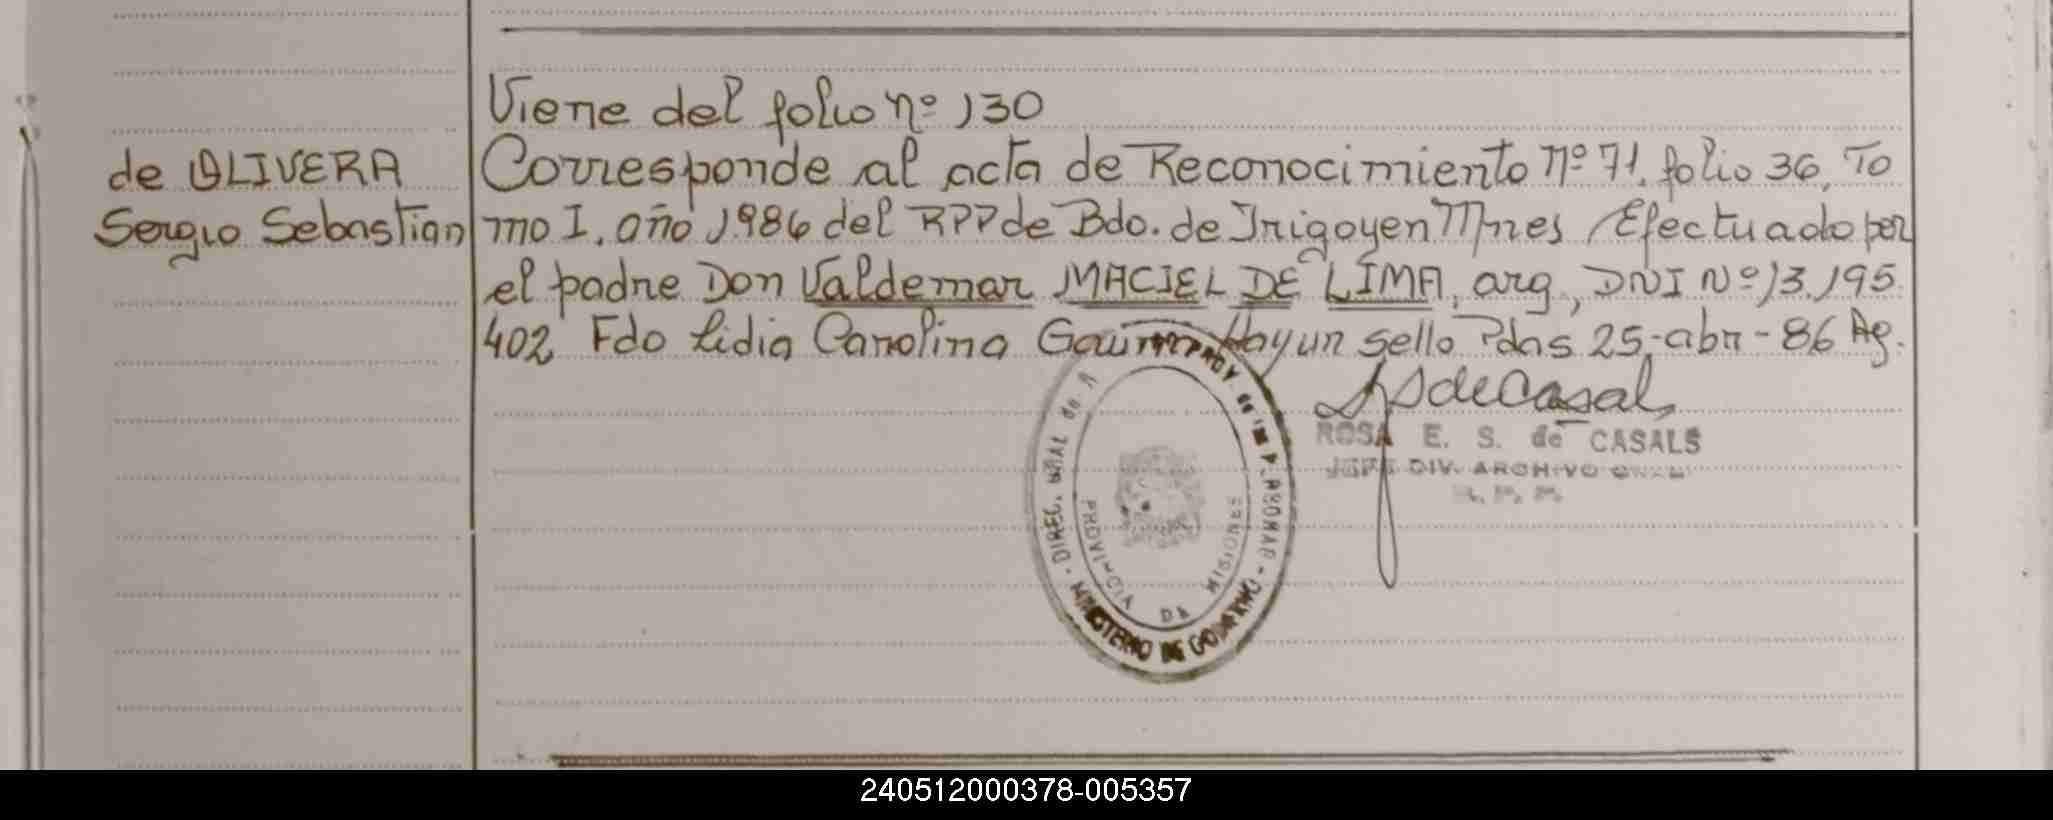 Viene del folio nº 130
de OLIVERA
Sergio Sebastian
Corresponde al acta de Reconocimiento Nº 71, folio 36, To
mo I, año 1.986 del RPP de Bdo. de Irigoyen Mnes / Efectuado por
el padre Don Valdemar MACIEL DE LIMA, arg, DNI Nº 13.195
402 Fdo Lidia Carolina Hay un sello Pdas 25-abr-86 Ag.
ROSA E. S. de CASALS
JEFE DIV. ARCHIVO GRAL
R. P. P.
DIREC. GRAL de
MINISTERIO DE GOBIERNO
MISIONES
240512000378-005357